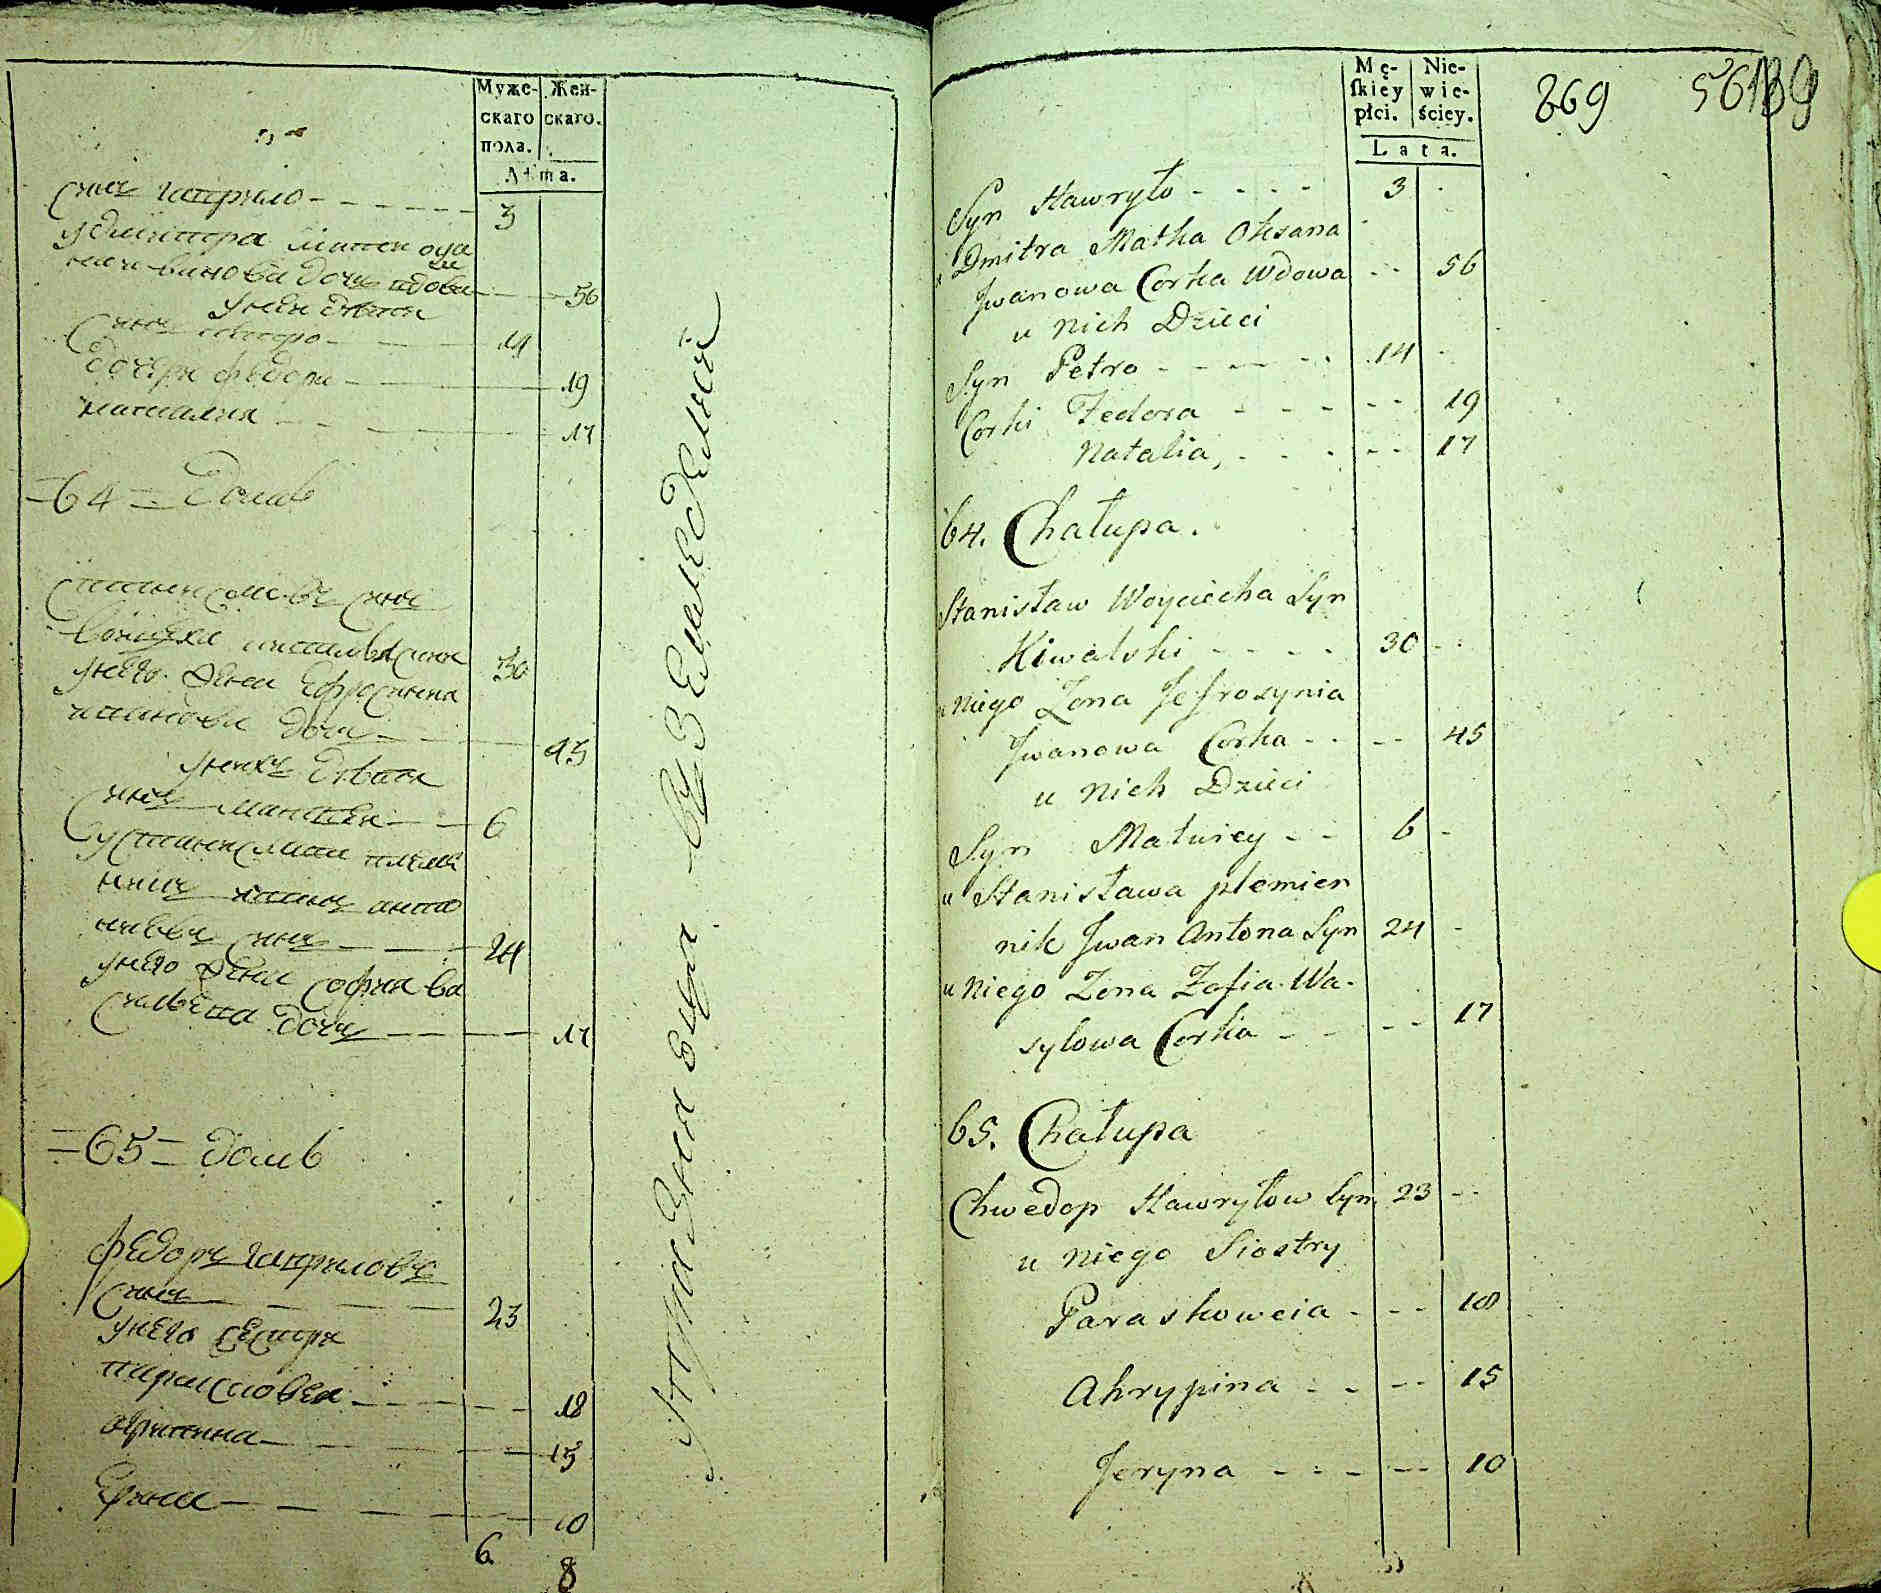 Муже-
скаго
пола.
Жен-
скаго.
Лѣта.
Сынъ гаврило - - - - - - 3
удмитра матка
дочь вдова - - 56
у них дѣти
Сынъ петро - - - 14
дочери федора - - - 19
наталия - - - 17
= 64 = Домъ
Станиславъ сынъ
30
у него жена Ефросиния
иванова дочь - - - 45
у нихъ дѣти
Сынъ матвей - - 6
у станислава племя
нникъ иванъ анто
новъ сынъ - - - 24
у него жена София ва
силева дочь - - - 17
= 65 = домъ
федоръ гавриловъ
сынъ - - - 23
у него сестры
парасковея - - - 18
агрипина - - - 15
Ерина - - - 10
6 8
Mę-
skiey
płci.
Nie-
wie-
ściey.
Lata.
269
Syn Hawryło - - - - 3
u Dmitra Matka Oksana
Jwanowa Corka Wdowa - - 56
u nich Dzieci
Syn Petro - - - - 14
Corki Fedora - - - - - 19
Natalia, - - - - - 17
64. Chałupa.
Stanisław Woyciecha Syn
Kiwalski - - - - 30
u niego Zona Jefrosynia
Jwanowa Corka - - - - 45
u nich Dzieci
Syn Matwiey - - 6
u Stanisława plemien
nik Jwan Antona Syn 24
u niego Zona Zofia Wa-
sylowa Corka - - - - 17
65. Chałupa
Chwedop Hawryłow Syn 23
u niego Siostry
Paraskoweia - - - 18
Ahrypina - - - - 15
Jeryna - - - - - 10